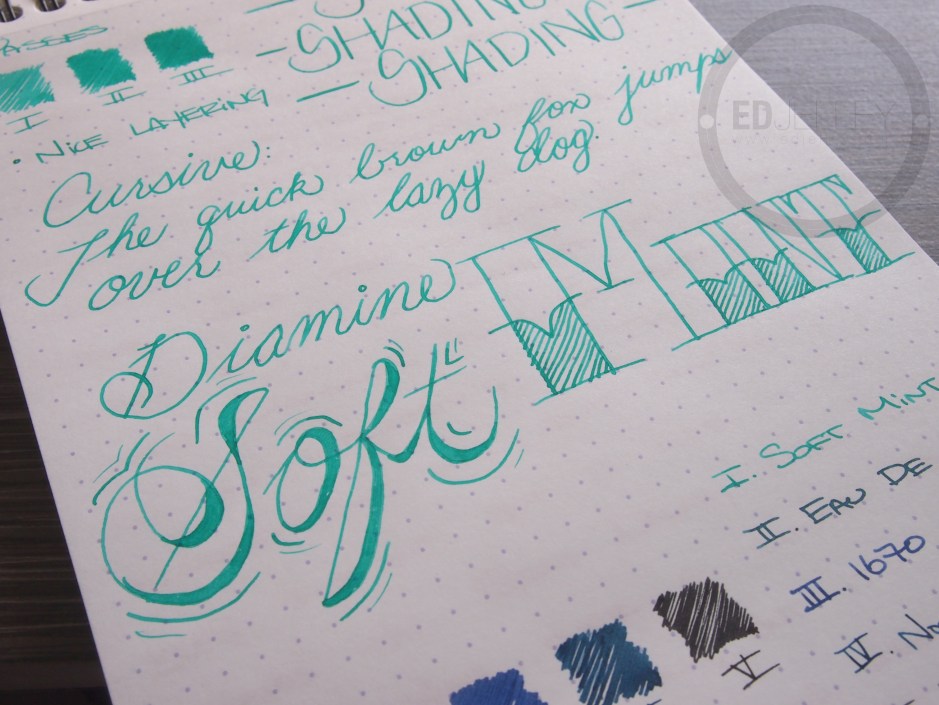 - SHADING -
- SHADING -
I II III
• NICE LAYERING
Cursive:
The quick brown fox jumps
over the lazy dog.
Diamine
Soft MINT
I. SOFT MINT
II. EAU DE
III. 1670
IV.
V